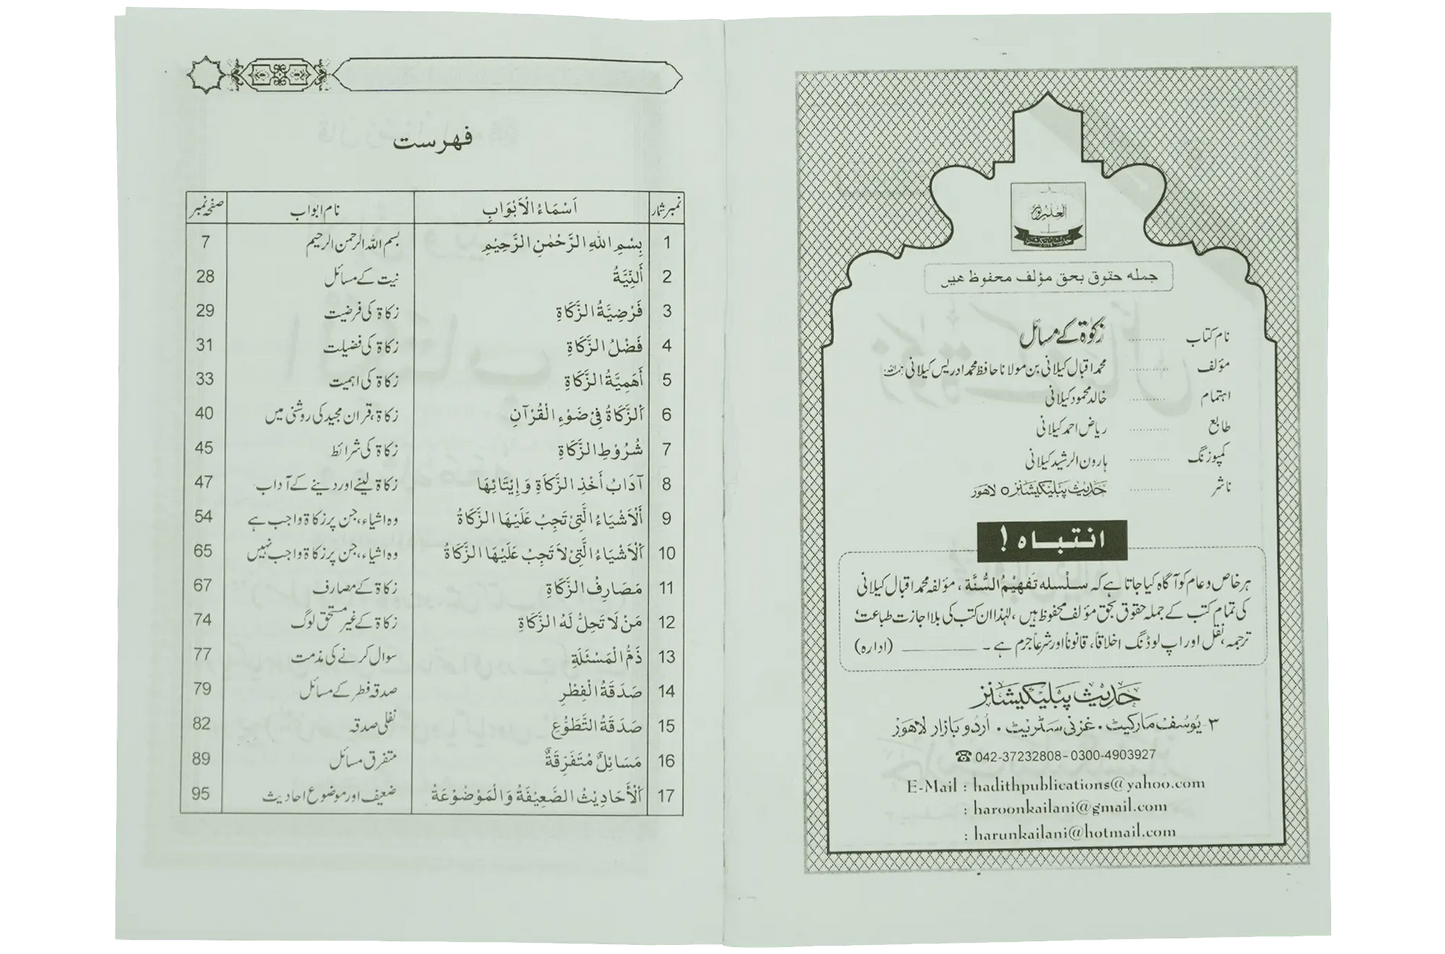 العلم نور
جملہ حقوق بحق مؤلف محفوظ ھیں
نام کتاب ............ زکوٰۃ کے مسائل
مؤلف ............ محمد اقبال کیلانی بن مولانا حافظ محمد ادریس کیلانی
اہتمام ............ خالد محمود کیلانی
طابع ............ ریاض احمد کیلانی
کمپوزنگ ............ ہارون الرشید کیلانی
ناشر ............ حدیث پبلیکیشنز ○ لاھور
انتباہ !
ہر خاص و عام کو آگاہ کیا جاتا ہے کہ سلسلہ تفہیم السُّنۃ ، مؤلفہ محمد اقبال کیلانی
کی تمام کتب کے جملہ حقوق بحق مؤلف محفوظ ہیں ، لہٰذا ان کتب کی بلا اجازت طباعت ؛
ترجمہ ، نقل اور اپ لوڈنگ اخلاقاً، قانوناً اور شرعاً جرم ہے ۔ ________ (ادارہ)
حدیث پبلیکیشنز
۳ یُوسف مارکیٹ ۰ غزنی سٹریٹ ۰ اُردو بازار لاھور
☎ 042-37232808 - 0300-4903927
E-Mail : hadithpublications@yahoo.com
: haroonkailani@gmail.com
: harunkailani@hotmail.com
فہرست
نمبر شمار اَسْمَاءُ الْاَبْوَابِ نام ابواب صفحہ نمبر
1 بِسْمِ اللهِ الرَّحْمٰنِ الرَّحِيْمِ بسم اللہ الرحمن الرحیم 7
2 أَلنِّيَّةُ نیت کے مسائل 28
3 فَرْضِيَّةُ الزَّكَاةِ زکاۃ کی فرضیت 29
4 فَضْلُ الزَّكَاةِ زکاۃ کی فضیلت 31
5 أَهَمِيَّةُ الزَّكَاةِ زکاۃ کی اہمیت 33
6 اَلزَّكَاةُ فِيْ ضَوْءِ الْقُرْآنِ زکاۃ ،قرآن مجید کی روشنی میں 40
7 شُرُوْطِ الزَّكَاةِ زکاۃ کی شرائط 45
8 آدَابُ أَخْذِ الزَّكَاةِ وَإِيْتَائِهَا زکاۃ لینے اور دینے کے آداب 47
9 أَلْأَشْيَاءُ الَّتِيْ تَجِبُ عَلَيْهَا الزَّكَاةُ وہ اشیاء، جن پر زکاۃ واجب ہے 54
10 أَلْأَشْيَاءُ الَّتِيْ لاَ تَجِبُ عَلَيْهَا الزَّكَاةُ وہ اشیاء، جن پر زکاۃ واجب نہیں 65
11 مَصَارِفِ الزَّكَاةِ زکاۃ کے مصارف 67
12 مَنْ لَا تَحِلُّ لَهُ الزَّكَاةِ زکاۃ کے غیر مستحق لوگ 74
13 ذَمُّ الْمَسْئَلَةِ سوال کرنے کی مذمت 77
14 صَدَقَةُ الْفِطْرِ صدقہ فطر کے مسائل 79
15 صَدَقَةُ التَّطَوُّعِ نفلی صدقہ 82
16 مَسَائِلٌ مُتَفَرِّقَةٌ متفرق مسائل 89
17 اَلْأَحَادِيْثُ الضَّعِيْفَةُ وَالْمَوْضُوْعَةُ ضعیف اور موضوع احادیث 95